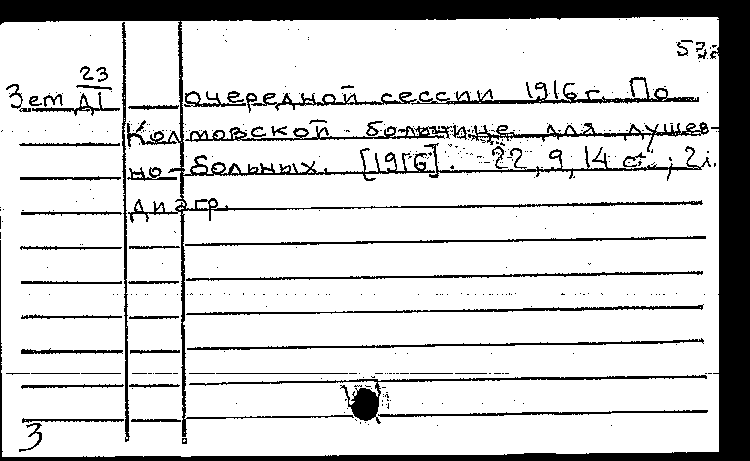 23
Зем Д1 очередной сессии 1916 г. По
Колмовской больнице для душев-
но-больных. [1916]. 22, 9, 14 ст.; 2 л.
диагр.
3